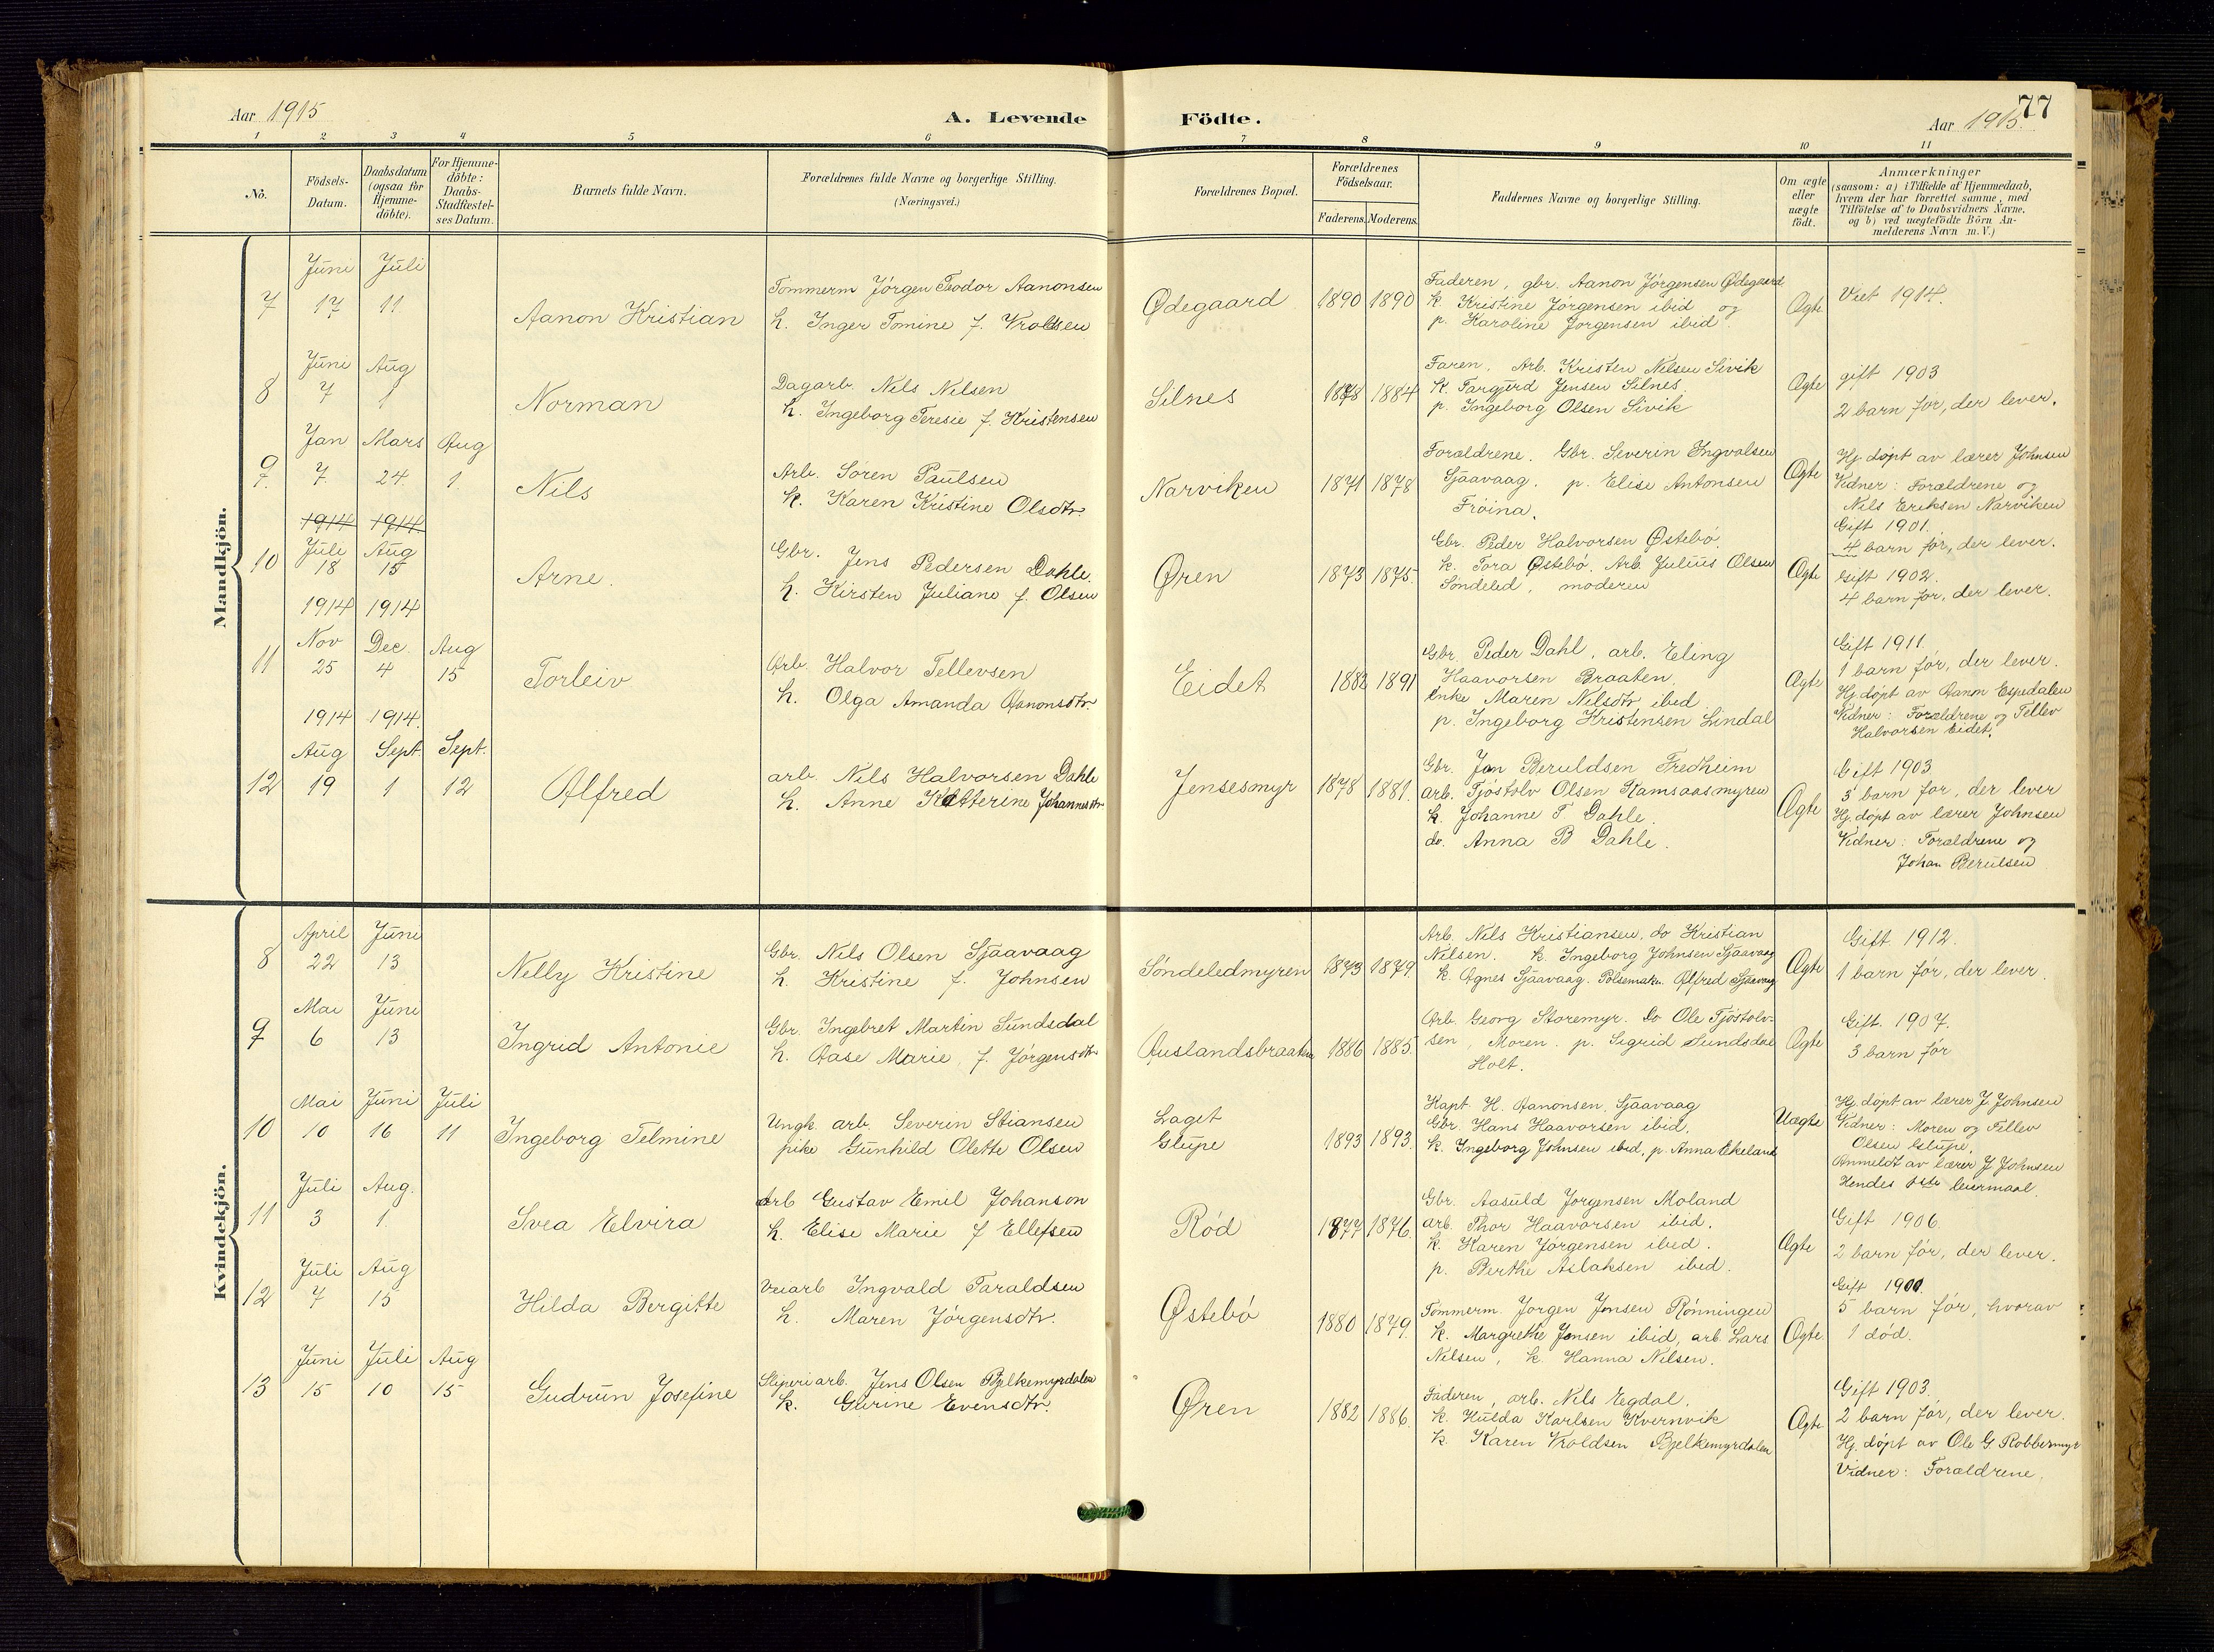 Aar 1915
A. Levende
Födte.
Aar 1915.
77
1 2 3 4 5 6 7 8 9 10 11
No.
Födsels-
Datum.
Daabsdatum
(ogsaa for
Hjemme-
döbte).
For Hjemme-
döbte:
Daabs-
Stadfæstel-
ses Datum.
Barnets fulde Navn.
Forældrenes fulde Navne og borgerlige Stilling.
(Næringsvei.)
Forældrenes Bopæl.
Forældrenes
Födselsaar.
Faderens. Moderens.
Faddernes Navne og borgerlige Stilling.
Om ægte
eller
uægte
födt.
Anmærkninger
(saasom: a) i Tilfælde af Hjemmedaab,
hvem der har forrettet samme, med
Tilföielse af to Daabsvidners Navne,
og b) ved uægtefödte Börn An-
melderens Navn m. V.)
Mandkjön.
7
Juni Juli
17 11
Aanon Kristian
Tommerm Jørgen Teodor Aanonsen
h. Inger Tomine f. Vroldsen
Ødegaard
1890 1890
Faderen, gbr. Aanon Jørgensen Ødegaard
k. Kristine Jørgensen ibid og
p. Karoline Jørgensen ibid.
Ægte
Viet 1914.
8
Juni Aug
7 1
Norman
Dagarb. Nils Nilsen
h. Ingeborg Teresie f. Kristensen
Silnes
1878 1884
Faren, Arb. Kristen Nilsen Sivik
k. Targjerd Jensen Silnes.
p. Ingeborg Olsen Sivik
Ægte
gift 1903
2 barn før, der lever.
9
Jan Mars Aug
7. 24. 1.
Nils
Arb. Søren Paulsen
k. Karen Kristine Olsdtr.
Narviken
1871 1878
Forældrene. Gbr. Severin Ingvalsen
Sjaavaag. p. Elise Antonsen
Frøina.
Ægte
Hj. døpt av lærer Johnsen
Vidner: Forældrene og
Nils Eriksen Narviken
Gift 1901.
4 barn før, der lever.
10
1914 1914
Juli Aug
18 15
Arne.
Gbr. Jens Pedersen Dahle.
h. Kirsten Juliane f. Olsen
Øren
1873 1875.
Gbr. Peder Halvorsen Østebø.
k. Tora Østebø. Arb. Julius Olsen
Søndeled, moderen
Ægte
Gift 1902.
4 barn før, der lever.
11
1914 1914
Nov Dec. Aug
25 4 15
Torleiv
Arb. Halvor Tellevsen
h. Olga Amanda Aanonsdtr.
Eidet
1882 1891
Gbr. Peder Dahl, arb. Eling
Haavorsen Braaten.
Enke Maren Nilsdtr ibid
p. Ingeborg Kristensen Lindal
Ægte
Gift 1911.
1 barn før, der lever.
Hj. døpt av Aanon Espedalen
Vidner: Forældrene og Tellev
Halvorsen Eidet.
12
1914 1914.
Aug Sept. Sept.
19 1 12
Alfred
arb. Nils Halvorsen Dahle
h. Anne Katterine Johannesdtr
Jensesmyr
1878 1881.
Gbr. Jon Beruldsen Fredheim
arb. Tjøstolv Olsen Kamsaasmyren
k. Johanne T Dahle.
do. Anna B Dahle.
Ægte
Gift 1903
3 barn før, der lever
Hj. døpt av lærer Johnsen
Vidner: Forældrene og
Johan Berulsen
Kvindekjön.
8
April Juni
22 13
Nelly Kristine
Gbr. Nils Olsen Sjaavaag
h. Kristine f. Johnsen
Søndeledmyren
1873 1879.
Arb. Nils Kristiansen, do Kristian
Nilsen. k. Ingeborg Johnsen Sjaavaag
k. Agnes Sjaavaag. Pølsemaker Alfred Sjaavaag
Ægte
Gift 1912.
1 barn før, der lever.
9
Mai Juni
6 13
Ingrid Antonie
Gbr. Ingebret Martin Sundsdal
h. Aase Marie, f. Jørgensdtr
Auslandsbraaten
1886 1885.
Arb. Georg Storemyr. Do Ole Tjøstolv-
sen, Moren. p. Sigrid Sundsdal
Holt.
Ægte
Gift. 1907.
3 barn før
10
Mai Juni Juli
10 16 11
Ingeborg Telmine
Ungk. arb. Severin Stiansen
pike Gunhild Olette Olsen
Laget
Glupe
1893 1893.
Kapt. H. Aanonsen. Sjaavaag
Gbr. Hans Haavorsen ibid.
k. Ingeborg Johnsen ibid, p. Anna Ekeland
Uægte
Hj. døpt av lærer J. Johnsen
Vidner: Moren og Tellev
Olsen Glupe.
Anmeldt av lærer J Johnsen
Hendes 1ste leiermaal.
11
Juli Aug.
3 1.
Svea Elvira
Arb Gustav Emil Johanson
h. Elise Marie f Ellefsen
Rød
1877 1876.
Gbr. Aasuld Jørgensen Moland
arb. Thor Haavorsen ibid.
k. Karen Jørgensen ibid.
p. Berthe Aslaksen ibid.
Ægte
Gift 1906.
2 barn før, der lever.
12
Juli Aug
7 15
Hilda Bergitte
Veiarb Ingvald Taraldsen
h. Maren Jørgensdtr.
Østebø
1880 1879.
Tømmerm. Jørgen Jensen Rønningen
k. Margrethe Jensen ibid, arb Lars
Nilsen, k. Hanna Nilsen.
Ægte.
Gift 1900.
5 barn før, hvorav
1 død.
13
Juni Juli Aug
15 10 15
Gudrun Josefine
Sliperiarb. Jens Olsen Bjelkemyrdalen
k. Gurine Evensdtr.
Øren
1882 1886.
Faderen, arb. Nils Egdal.
k. Hulda Karlsen Kvernvik
k. Karen Vroldsen Bjelkemyrdalen
Ægte
Gift 1903.
2 barn før, der lever.
Hj. døpt av Ole G. Robbermyr
Vidner: Forældrene.